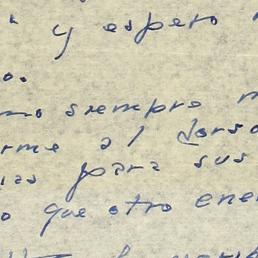 y espero
o.
mo siempre m
rme al dorso
ias para sus
o que otro ene